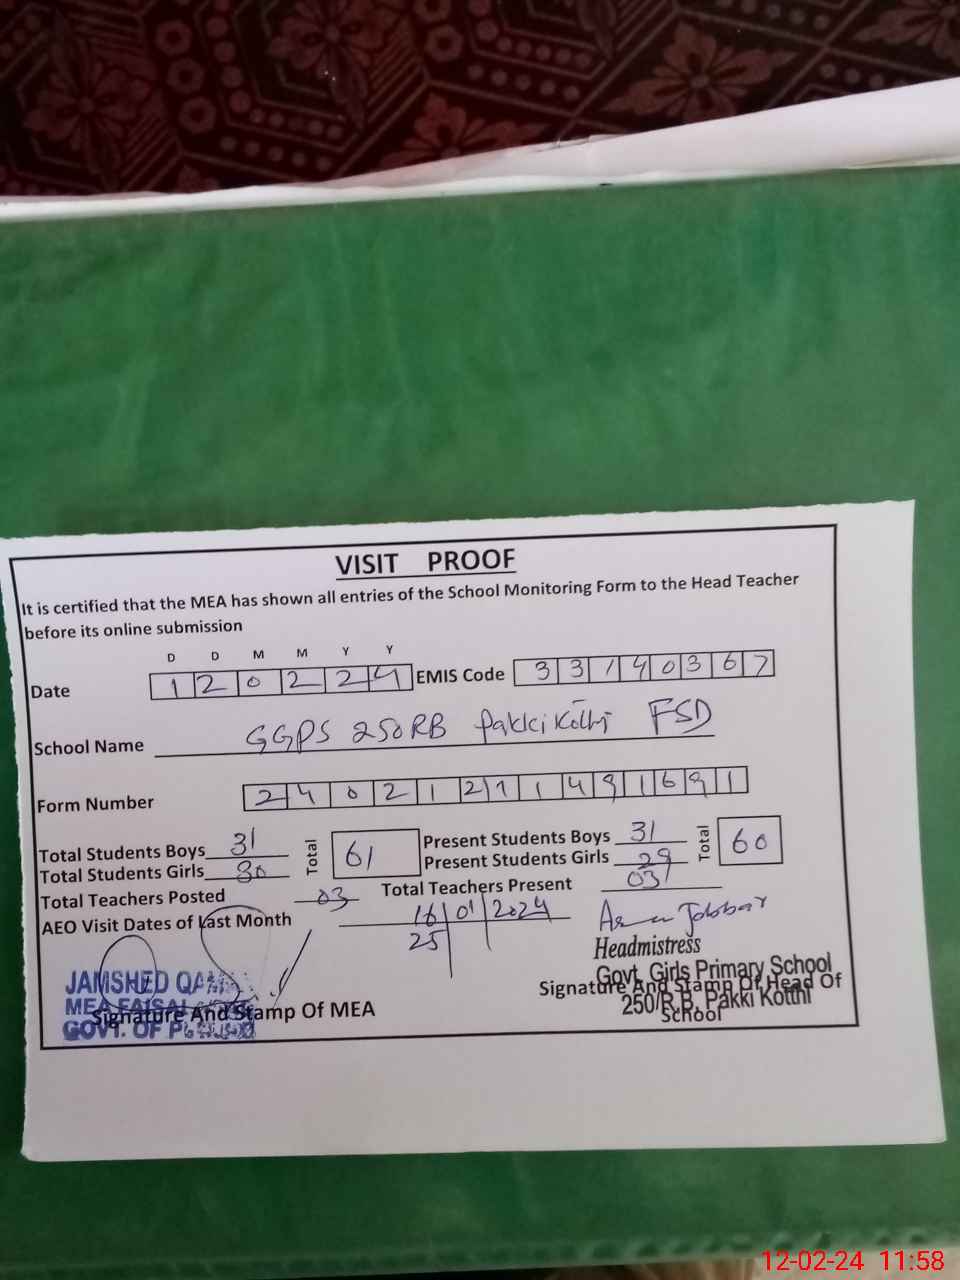 VISIT PROOF
It is certified that the MEA has shown all entries of the School Monitoring Form to the Head Teacher
before its online submission
D D M M Y Y
Date 1 2 0 2 2 4 EMIS Code 3 3 1 4 0 3 6 7
School Name GGPS 250RB Pakki Kothi FSD
Form Number 2 4 0 2 1 2 1 1 4 9 1 6 9 1
Total Students Boys 31 Total 61 Present Students Boys 31 Total 60
Total Students Girls 30 Present Students Girls 29
Total Teachers Posted 03 Total Teachers Present 03
AEO Visit Dates of Last Month 16 01 2024
25
Headmistress
Govt. Girls Primary School
250/R.B. Pakki Kotthi
JAMSHED
MEA FAISAL
GOVT. OF
Signature And Stamp Of MEA
Signature And Stamp Of Head Of
School
12-02-24 11:58